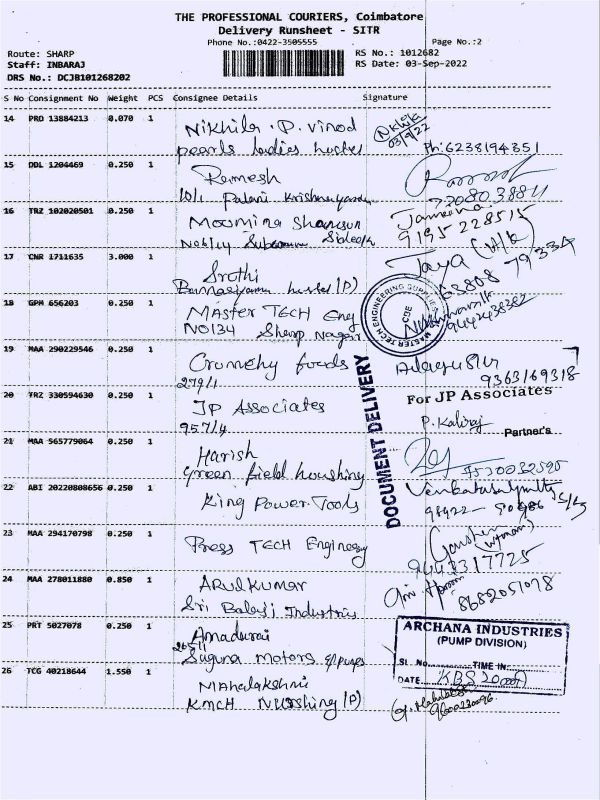 THE PROFESSIONAL COURIERS, Coimbatore
Delivery Runsheet - SITR
Phone No.:0422-3505555
Page No.:2
Route: SHARP
RS No.: 1012682
Staff: INBARAJ
RS Date: 03-Sep-2022
DRS No.: DCJB101268202
S No Consignment No Weight PCS Consignee Details Signature
14 PRO 13884213 0.070 1
Nikhila .P. Vinod
03/9/22
pearls ladies hostel
Ph:6238194351
15 DDL 1204469 0.250 1
Ramesh
10/1 Palani
16 TRZ 102020501 0.250 1
Moomina
9195228515
17 CNR 1711635 3.000 1
Jaya
Sruthi
hostel (P)
18 GPM 656203 0.250 1
MASTER TECH Eng
NO134 Sharp Nagar
MASTER TECH ENGINEERING SUPPLIES
CBE
19 MAA 290229546 0.250 1
Crunchy foods
279/1
9363169318
DOCUMENT DELIVERY
20 TRZ 330594630 0.250 1
For JP Associates
JP Associates
957/4
P. Kaliraj
Partner's
21 MAA 565779064 0.250 1
Harish
Green field houshing
22 ABI 20220808656 0.250 1
King Power Tools
23 MAA 294170798 0.250 1
Press TECH Engineery
9443317725
24 MAA 278011880 0.850 1
Arulkumar
8682051078
Sri Balaji Industries
25 PRT 5027078 0.250 1
Amadurai
Suguna Motors
ARCHANA INDUSTRIES
(PUMP DIVISION)
SL NO. TIME IN:
DATE
26 TCG 40218644 1.550 1
Mahalakshmi
KMCH Nurshing (P)
9600230096